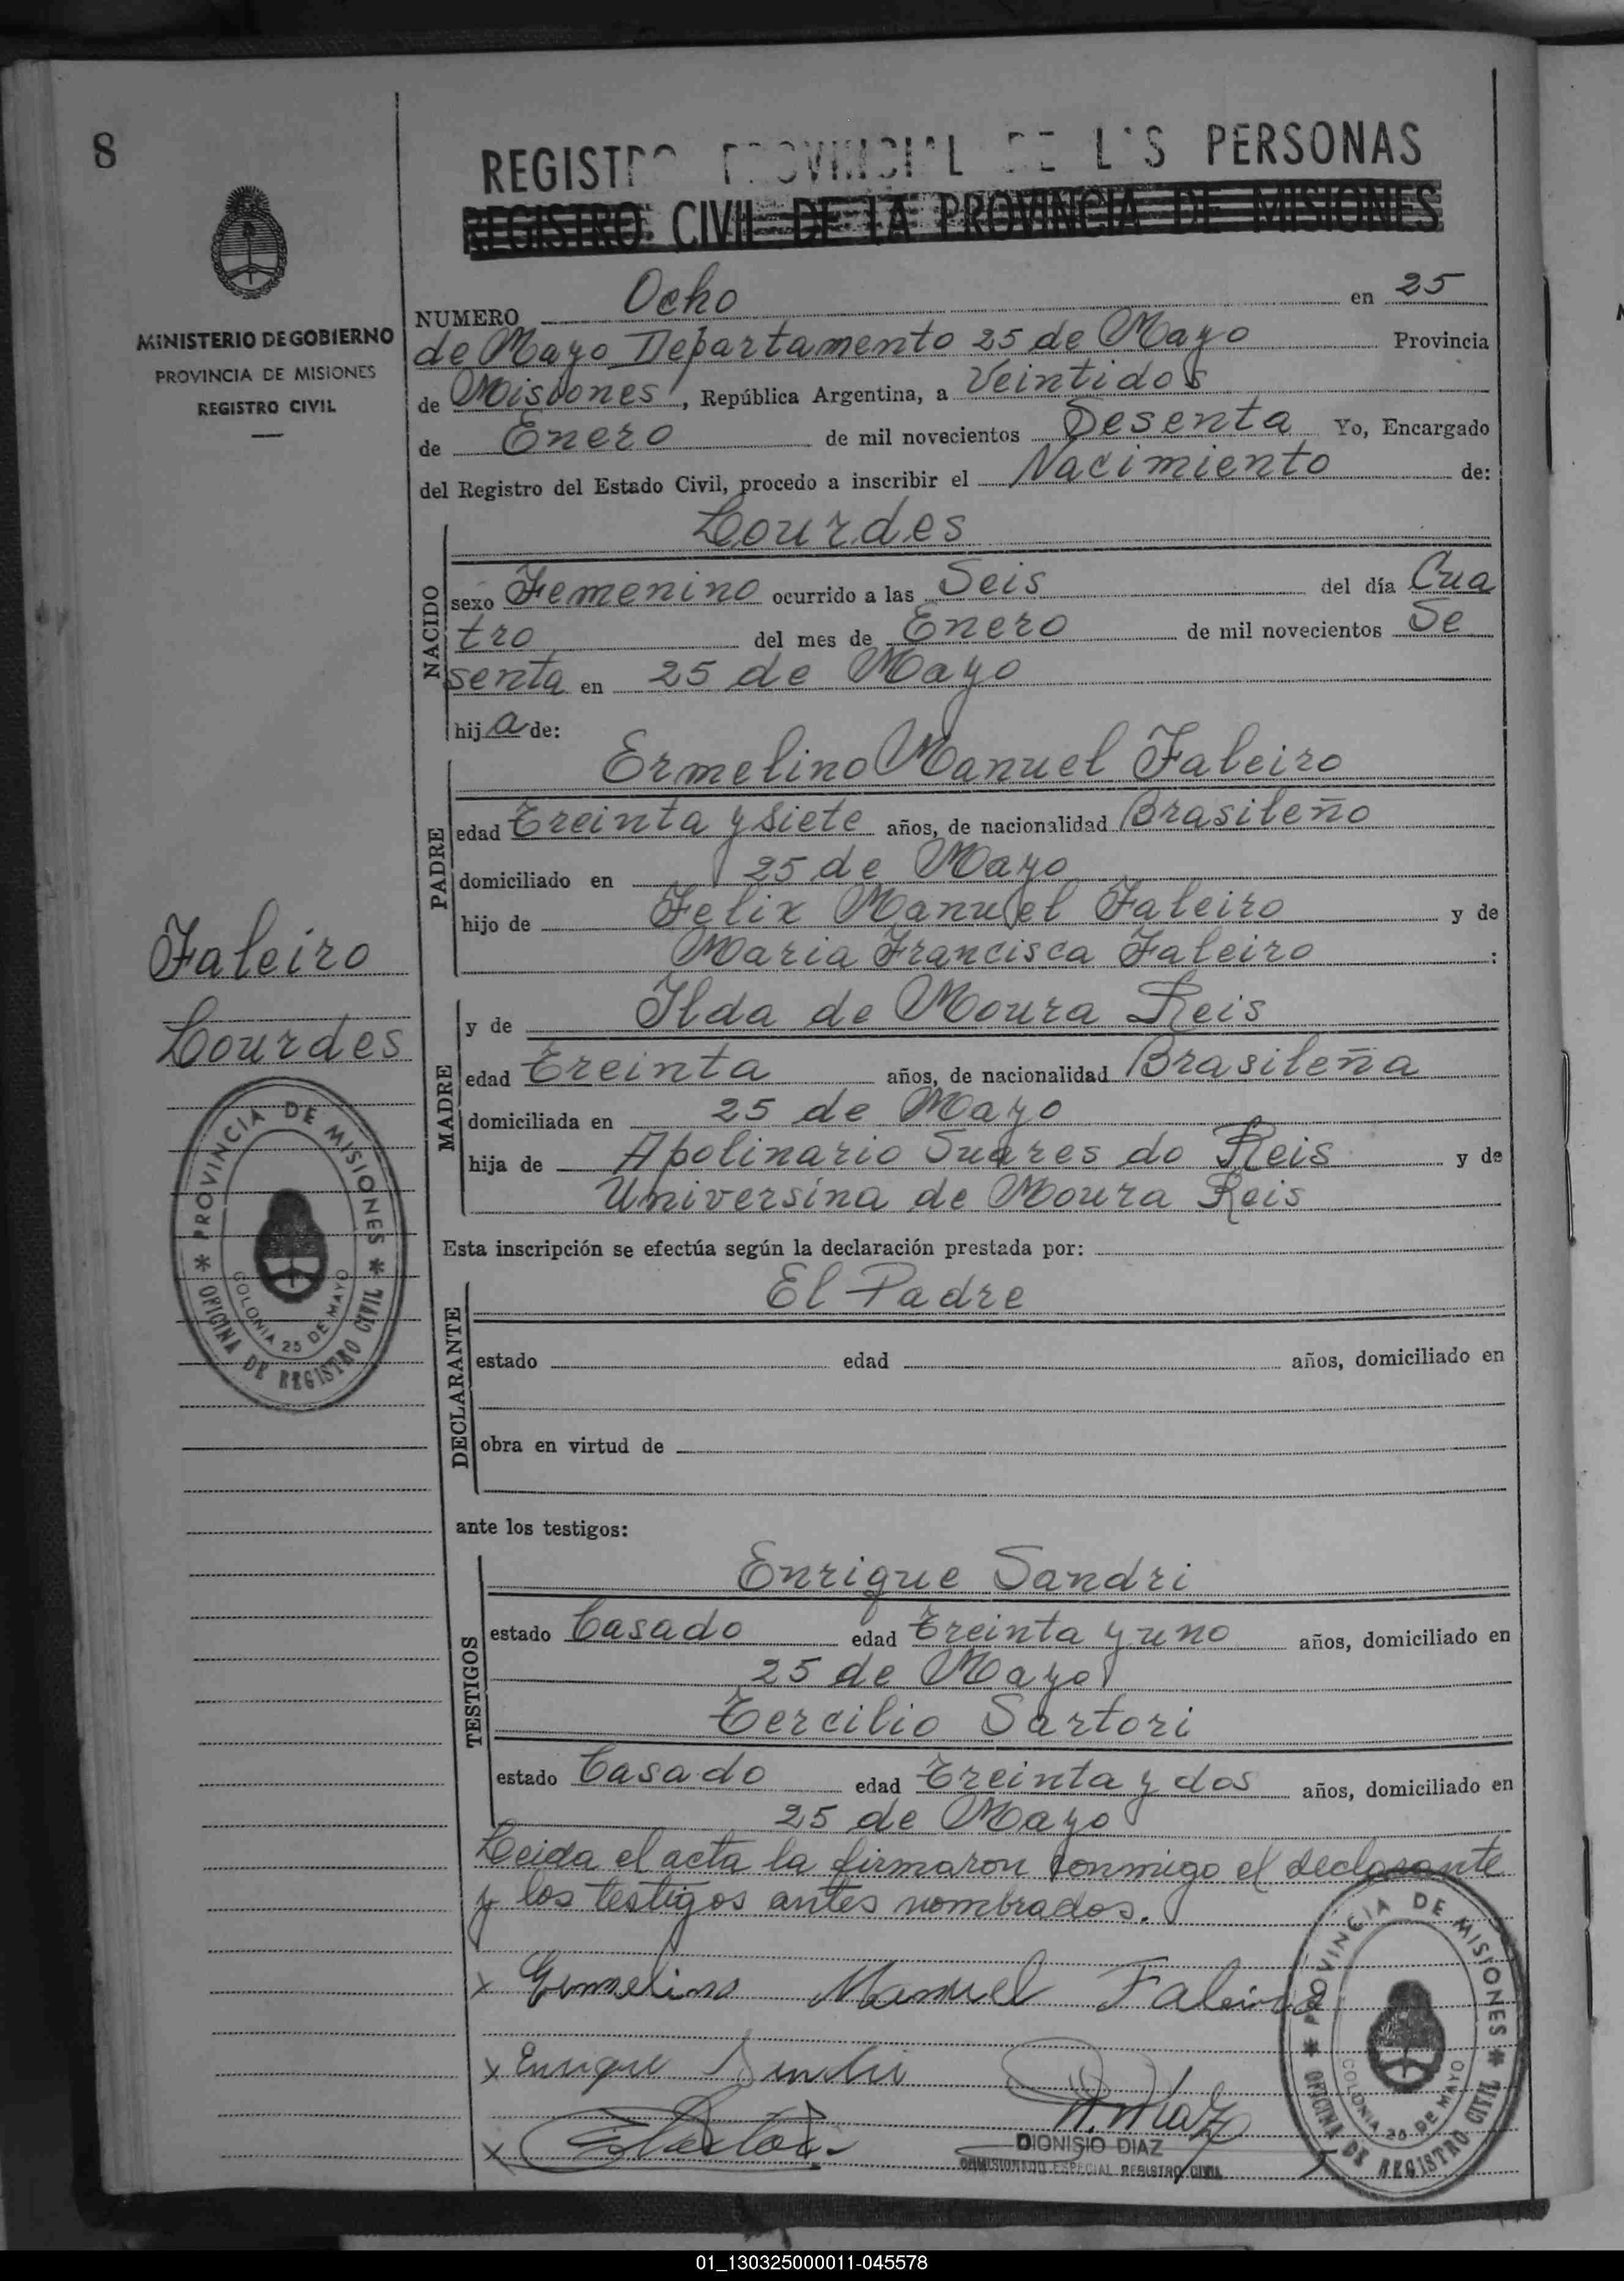 8
REGISTRO PROVINCIAL DE LAS PERSONAS
REGISTRO CIVIL DE LA PROVINCIA DE MISIONES
MINISTERIO DE GOBIERNO
PROVINCIA DE MISIONES
REGISTRO CIVIL
NUMERO Ocho en 25
de Mayo Departamento 25 de Mayo Provincia
de Misiones, República Argentina, a Veintidos
de Enero de mil novecientos Sesenta Yo, Encargado
del Registro del Estado Civil, procedo a inscribir el Nacimiento de:
NACIDO
Lourdes
sexo Femenino ocurrido a las Seis del día Cua
tro del mes de Enero de mil novecientos Se
senta en 25 de Mayo
hija de:
PADRE
Ermelino Manuel Faleiro
edad Treinta y siete años, de nacionalidad Brasileño
domiciliado en 25 de Mayo
hijo de Felix Manuel Faleiro y de
Maria Francisca Faleiro :
Faleiro
Lourdes
MADRE
y de Ilda de Moura Reis
edad Treinta años, de nacionalidad Brasileña
domiciliada en 25 de Mayo
hija de Apolinario Suares do Reis y de
Universina de Moura Reis
PROVINCIA DE MISIONES
COLONIA 25 DE MAYO
OFICINA DE REGISTRO CIVIL
Esta inscripción se efectúa según la declaración prestada por:
DECLARANTE
El Padre
estado edad años, domiciliado en
obra en virtud de
ante los testigos:
TESTIGOS
Enrique Sandri
estado Casado edad Treinta y uno años, domiciliado en
25 de Mayo
Tercilio Sartori
estado Casado edad Treinta y dos años, domiciliado en
25 de Mayo
Leida el acta la firmaron conmigo el declarante
y los testigos antes nombrados.
x Ermelino Manuel Faleiro
x Enrique Sandri
x
DIONISIO DIAZ
COMISIONADO ESPECIAL REGISTRO CIVIL
PROVINCIA DE MISIONES
COLONIA 25 DE MAYO
OFICINA DE REGISTRO CIVIL
01_130325000011-045578